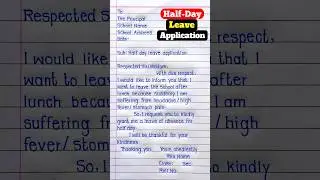 Half-Day
Leave
Application
To
The Principal
School Name
School Address
Date:
Sub: Half day leave application
Respected Sir/Madam,
With due respect,
I would like to inform you that I
want to leave the School after
lunch, because suddenly I am
suffering from headache/high
fever/stomach pain.
So, I request you to kindly
grant me a leave of absence for
half day.
I will be thankful for your
kindness
Thanking you
Yours obediently
Your Name
Class: Sec:
Roll No:
Respected S
I would like
want to lea
lunch, beca
suffering fr
fever/stoma
So, I
th due respect,
you that I
School after
ly I am
ache/high
o kindly